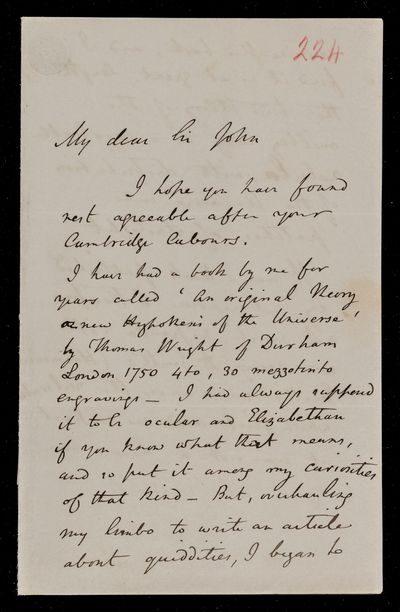 224
My dear Sir John
I hope you have found
rest agreeable after your
Cambridge labours.
I have had a book by me for
years called 'An original theory
or new Hypothesis of the Universe'
by Thomas Wright of Durham
London 1750 4to, 30 mezzotinto
engravings — I had always supposed
it to be ocular and Elizabethan
if you know what that means,
and so put it among my curiosities
of that kind — But, overhauling
my limbo to write an article
about quiddities, I began to